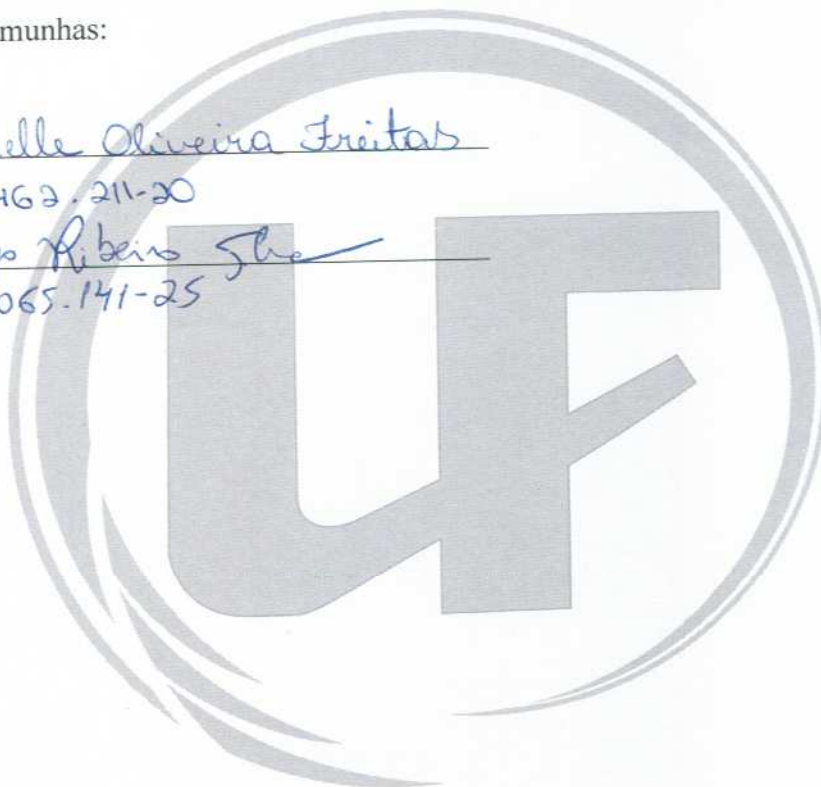 munhas:
elle Oliveira Freitas
462.211-20
Ribeiro
065.141-25
UF